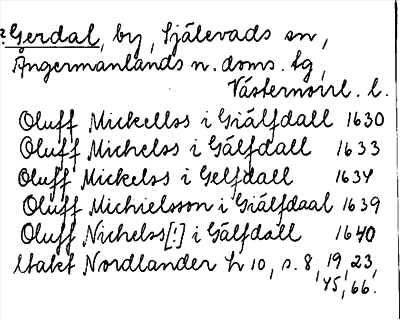 Gerdal, by, Själevads sn,
Ångermanlands n. doms. tg,
Västernorrl. l.
Oluff Mickellss i Giälfdall 1630
Oluff Michelss i Gälfdall 1633
Oluff Mickelss i Gelfdall 1634
Oluff Michielsson i Giälfdaal 1639
Oluff Nichelss[!] i Gälfdall 1640
Utakt Nordlander h 10, s. 8, 19, 23,
45, 66.